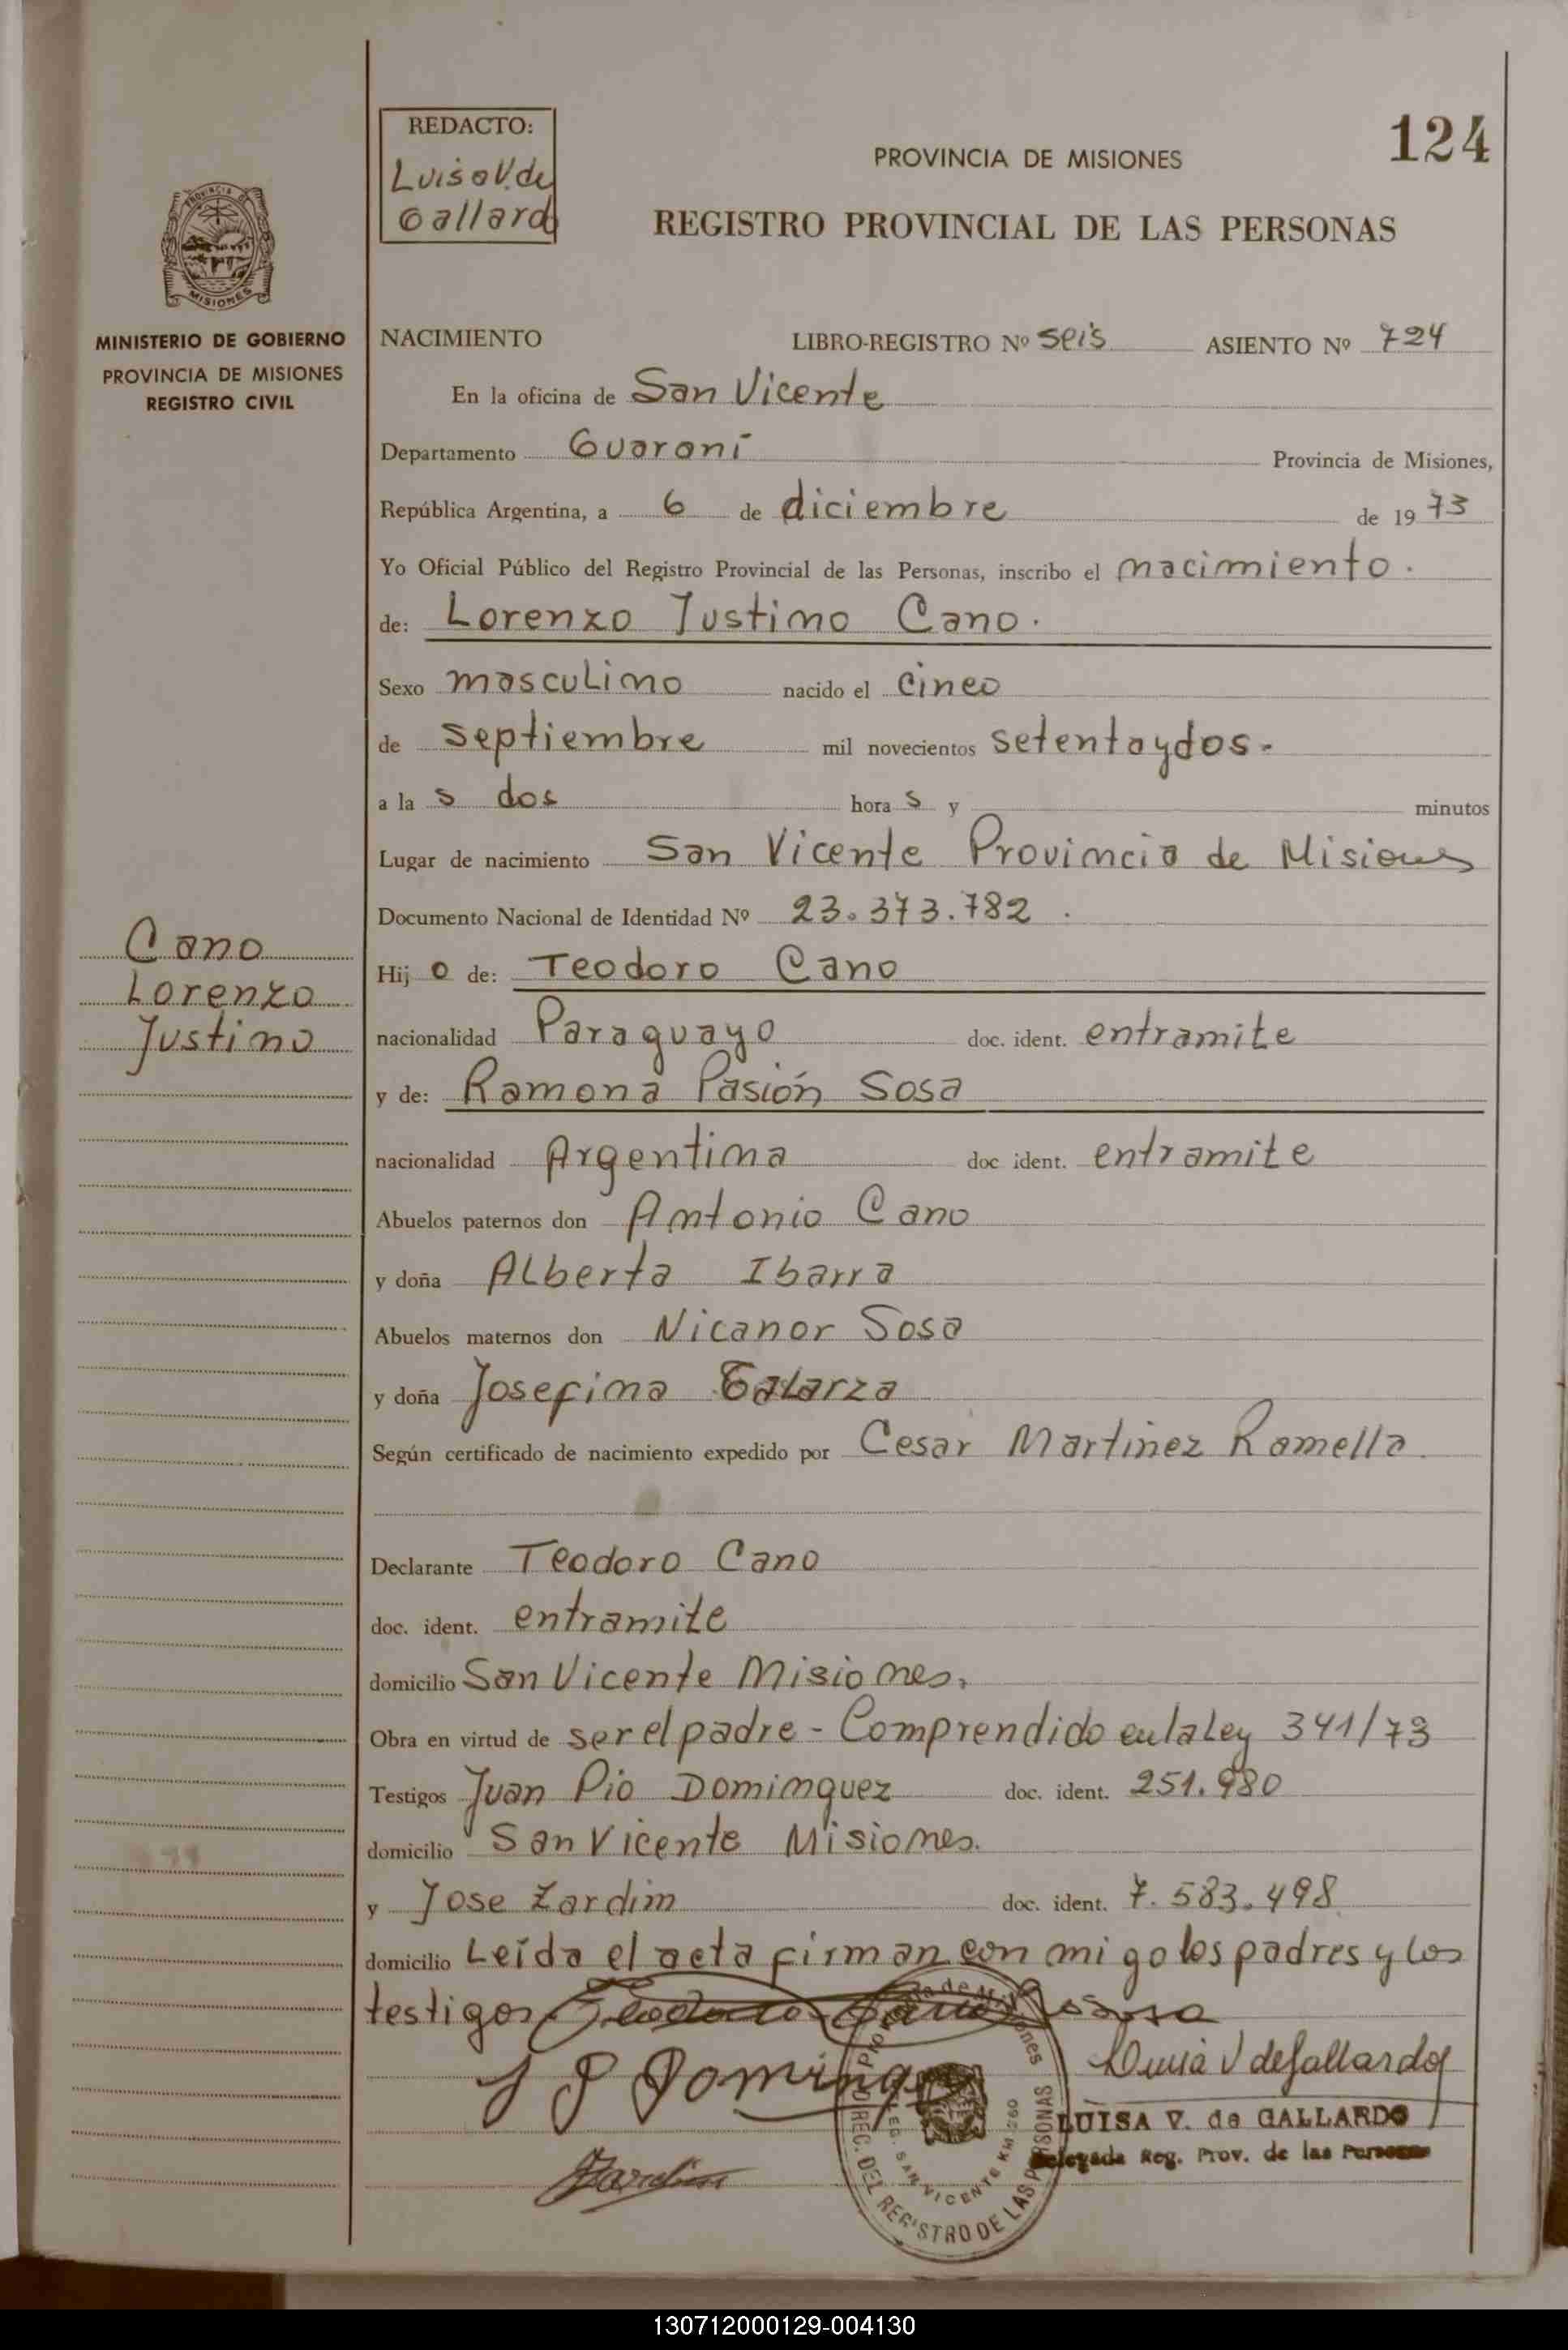 REDACTO:
Luisa V. de
Gallardo
124
PROVINCIA DE MISIONES
REGISTRO PROVINCIAL DE LAS PERSONAS
PROVINCIA DE
MISIONES
MINISTERIO DE GOBIERNO
PROVINCIA DE MISIONES
REGISTRO CIVIL
NACIMIENTO LIBRO-REGISTRO Nº seis ASIENTO Nº 724
En la oficina de San Vicente
Departamento Guaraní Provincia de Misiones,
República Argentina, a 6 de diciembre de 19 73
Yo Oficial Público del Registro Provincial de las Personas, inscribo el nacimiento.
de: Lorenzo Justino Cano.
Sexo masculino nacido el cinco
de septiembre mil novecientos setentaydos.
a la s dos hora s y minutos
Lugar de nacimiento San Vicente Provincia de Misiones
Documento Nacional de Identidad Nº 23.373.782.
Cano
Lorenzo
Justino
Hij o de: Teodoro Cano
nacionalidad Paraguayo doc. ident. entramite
y de: Ramona Pasión Sosa
nacionalidad Argentina doc ident. entramite
Abuelos paternos don Antonio Cano
y doña Alberta Ibarra
Abuelos maternos don Nicanor Sosa
y doña Josefina Galarza
Según certificado de nacimiento expedido por Cesar Martinez Ramella.
Declarante Teodoro Cano
doc. ident. entramite
domicilio San Vicente Misiones.
Obra en virtud de ser el padre - Comprendido en la Ley 341/73
Testigos Juan Pio Dominguez doc. ident. 251.980
domicilio San Vicente Misiones.
y Jose Zardin doc. ident. 7.583.498
domicilio Leída el acta firman con migo los padres y los
testigos. Teodoro Cano
J P Doming
Luisa V de Gallardo
Zardin
LUISA V. de GALLARDO
Delegada Reg. Prov. de las Personas
Provincia de Misiones
DIREC. DEL REGISTRO DE LAS PERSONAS
SAN VICENTE KM 260
130712000129-004130